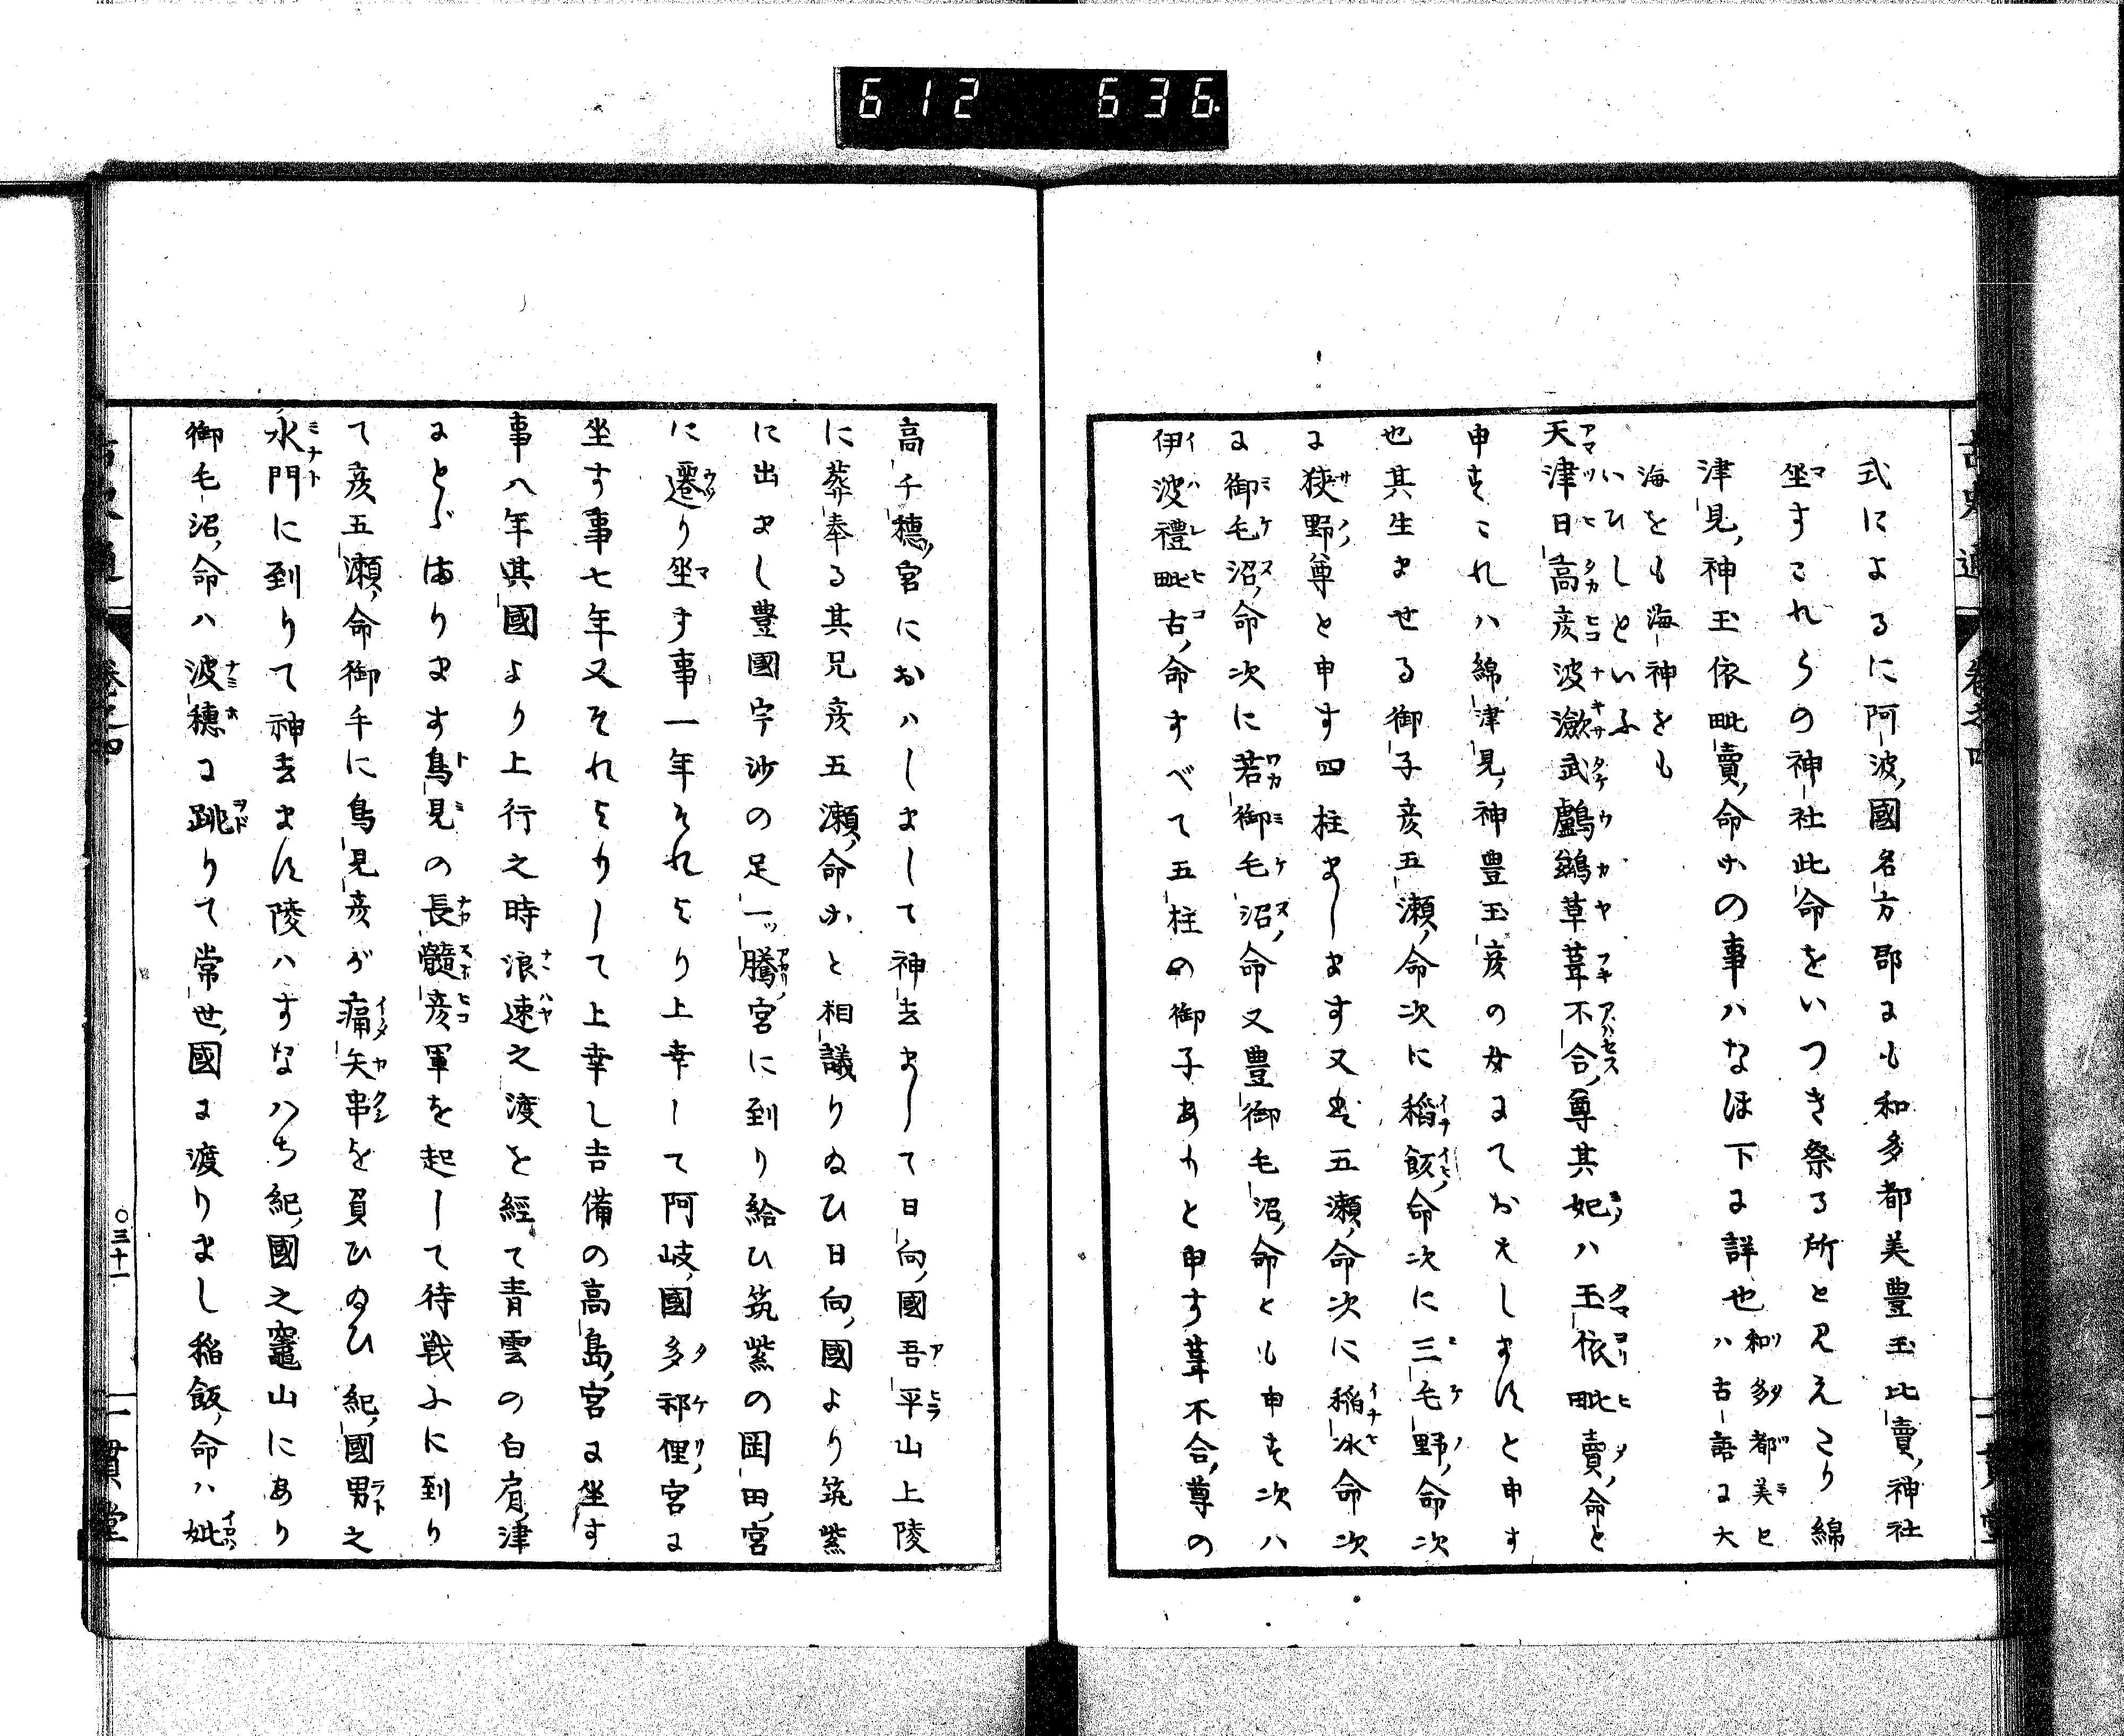 612 636.
式によるに阿波國名方郡にも和多都美豊玉比賣神社
坐すこれらの神社此命をいつき祭る所と見えたり綿
津見神玉依毗賣命等の事ハなほ下に詳也和多都美ヒハ古語に大
海をも海神をも
いひしといふ
天津日高彦波瀲武鸕鷀草葺不合尊其妃ハ玉依毗賣命と
申すこれハ綿津見神豊玉彦の女にておはしますと申す
也其生ませる御子彦五瀬命次に稲飯命次に三毛野命次
に狭野尊と申す四柱まします又は五瀬命次に稲氷命次
に御毛沼命次に若御毛沼命又豊御毛沼命とも申す次ハ
伊波禮毗古命すべて五柱の御子ありと申す葺不合尊の
高千穂宮におハしまして神去まして日向國吾平山上陵
に葬奉る其兄彦五瀬命等と相議りゐひ日向國より筑紫
に出まし豊國宇沙の足一騰宮に到り給ひ筑紫の岡田宮
に遷り坐す事一年それより上幸して阿岐國多祁俚宮に
坐す事七年又それよりして上幸し吉備の高島宮に坐す
事八年其國より上行之時浪速之渡を經て青雲の白肩津
にとゞまります鳥見の長髓彦軍を起して待戦ふに到り
て彦五瀬命御手に鳥見彦が痛矢串を負ひゐひ紀國男之
水門に到りて神去ます陵ハすなハち紀國之竈山にあり
御毛沼命ハ波穂に跳りて常世國に渡りまし稲飯命ハ妣
古史通 卷之四
〇三十一
一貫堂